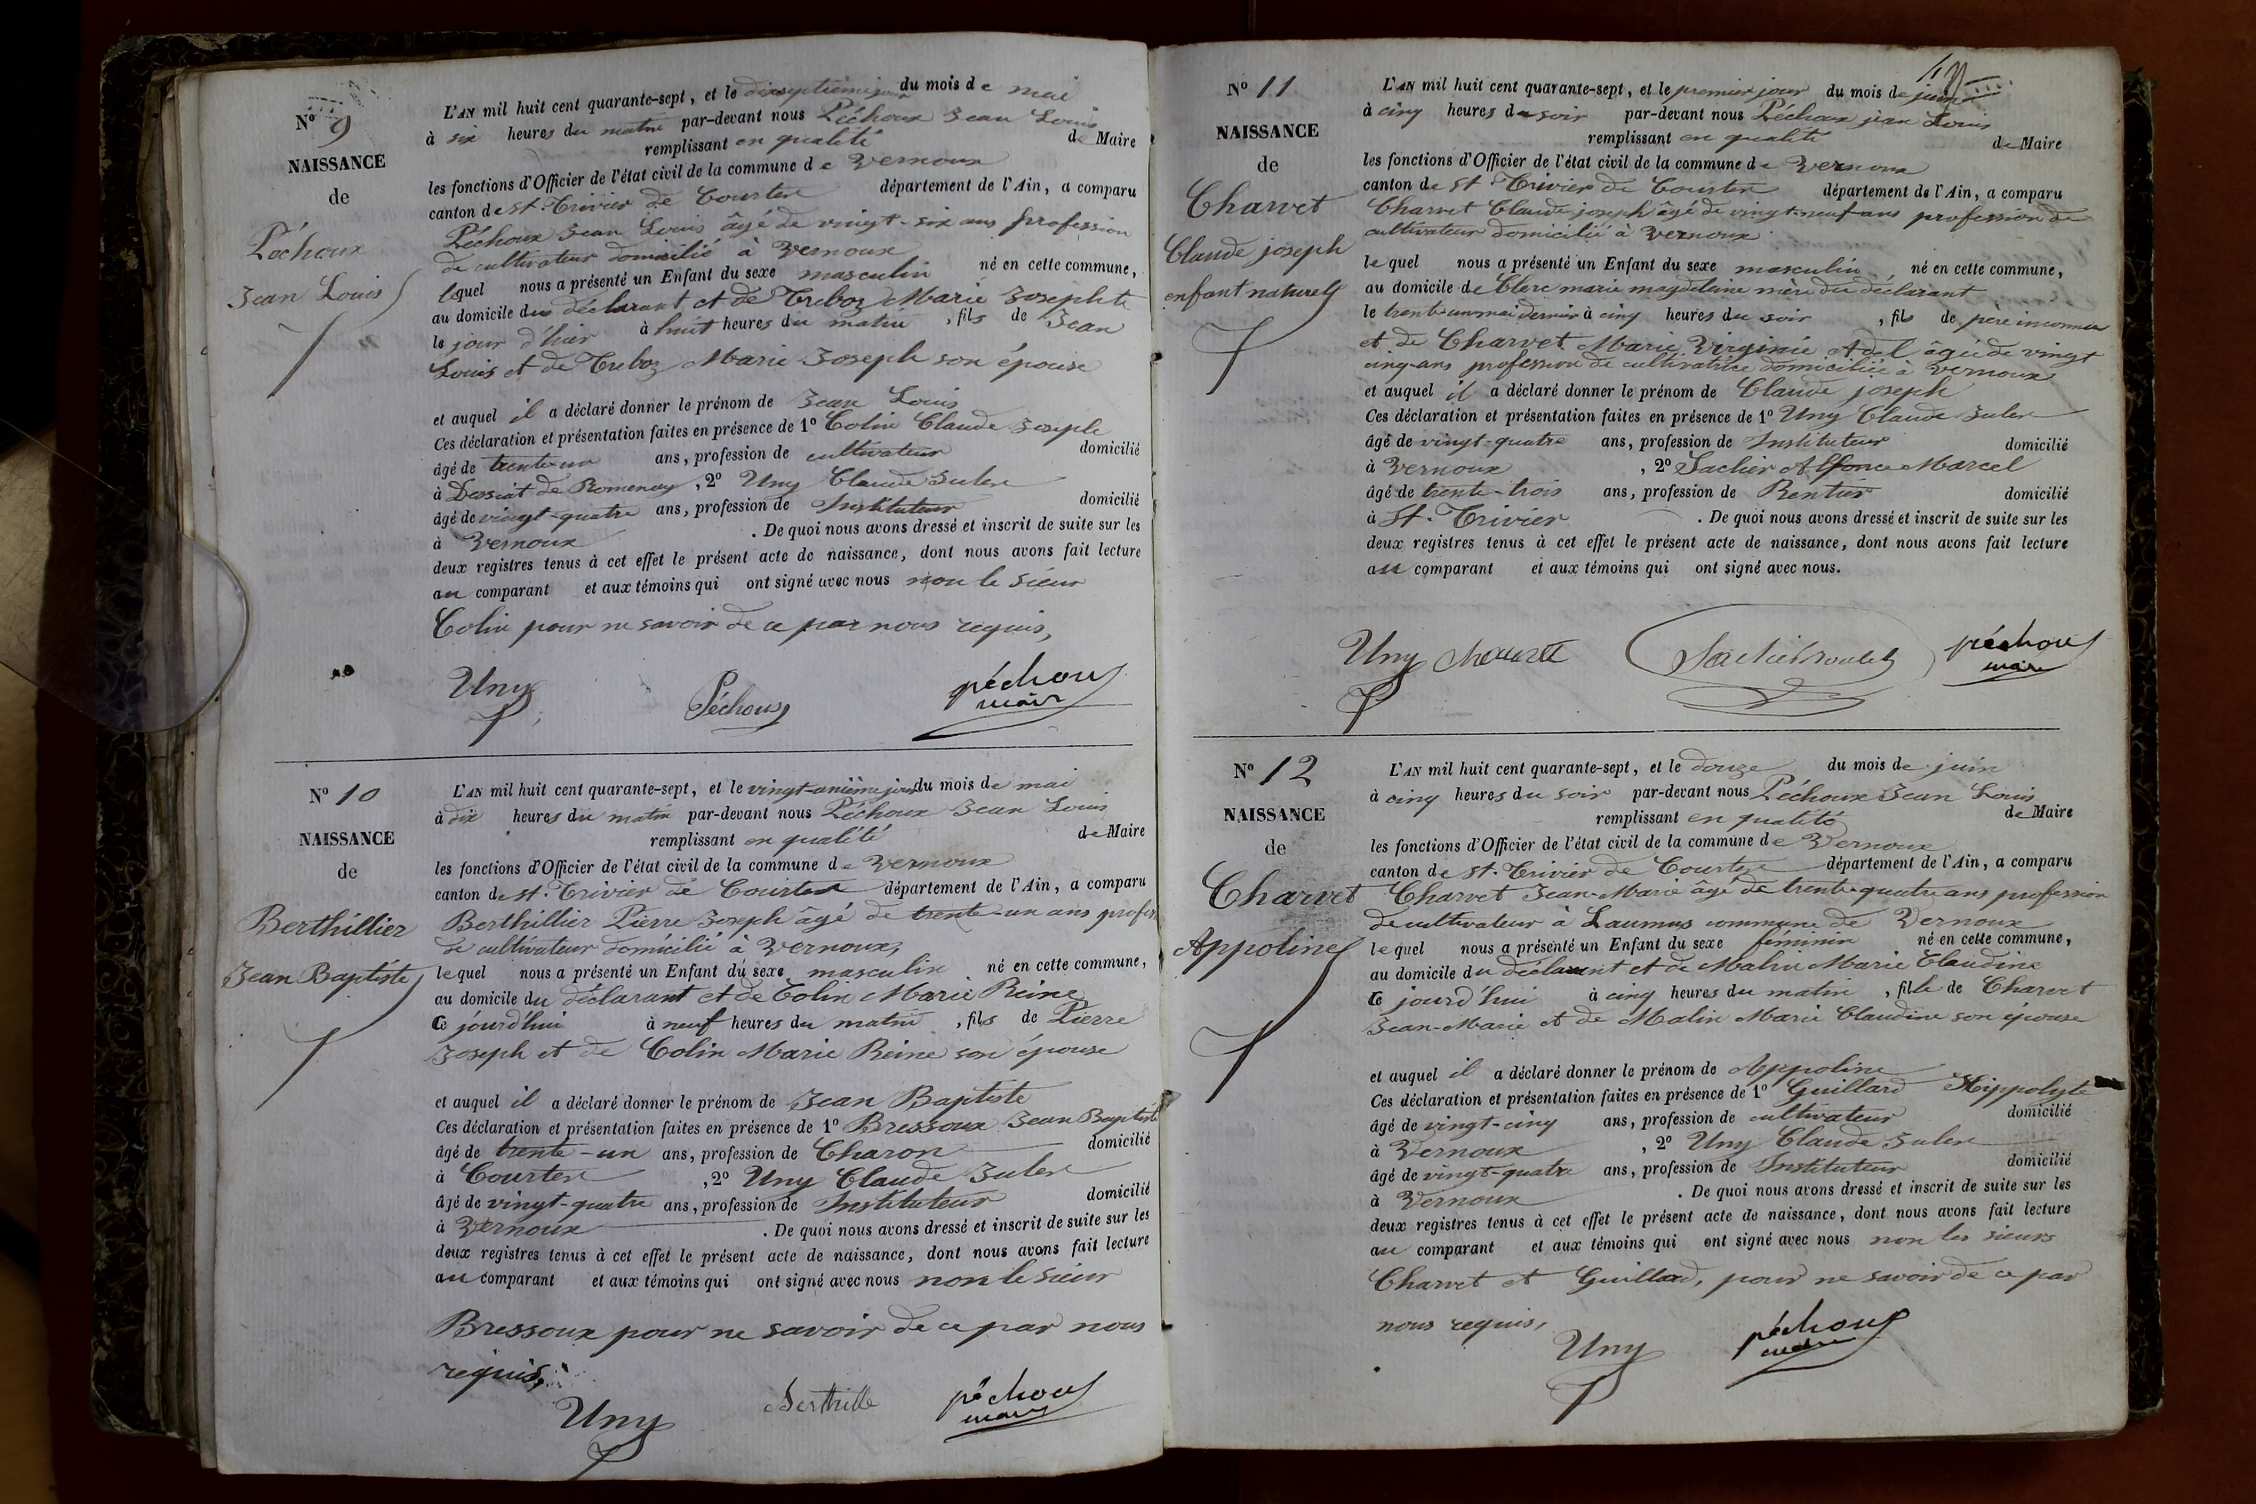 N° 9
NAISSANCE
de
Péchoux
Jean Louis
L'AN mil huit cent quarante-sept, et le dixseptième jour du mois de mai
à six heures du matin par-devant nous Péchoux Jean Louis
remplissant en qualité de Maire
les fonctions d'Officier de l'état civil de la commune de Vernoux
canton de St. Trivier de Courtes département de l'Ain, a comparu
Péchoux Jean Louis âgé de vingt-six ans profession
de cultivateur domicilié à Vernoux
lequel nous a présenté un Enfant du sexe masculin né en cette commune,
au domicile du déclarant et de Treboz Marie Josephte
le jour d'hier à huit heures du matin, fils de Jean
Louis et de Treboz Marie Joseph son épouse
et auquel il a déclaré donner le prénom de Jean Louis
Ces déclaration et présentation faites en présence de 1° Colin Claude Joseph
âgé de trente-un ans, profession de cultivateur domicilié
à de Romenay, 2° Uny Claude Jules
âgé de vingt-quatre ans, profession de Instituteur domicilié
à Vernoux. De quoi nous avons dressé et inscrit de suite sur les
deux registres tenus à cet effet le présent acte de naissance, dont nous avons fait lecture
au comparant et aux témoins qui ont signé avec nous non le sieur
Colin pour ne savoir de ce par nous requis,
Uny Péchoux péchoux
maire
N° 10
NAISSANCE
de
Berthillier
Jean Baptiste
L'AN mil huit cent quarante-sept, et le vingt-unième jour du mois de mai
à dix heures du matin par-devant nous Péchoux Jean Louis
remplissant en qualité de Maire
les fonctions d'Officier de l'état civil de la commune de Vernoux
canton de St. Trivier de Courtes département de l'Ain, a comparu
Berthillier Pierre Joseph âgé de trente-un ans profes
de cultivateur domicilié à Vernoux,
lequel nous a présenté un Enfant du sexe masculin né en cette commune,
au domicile du déclarant et de Colin Marie Reine
Ce jourd'hui à neuf heures du matin, fils de Pierre
Joseph et de Colin Marie Reine son épouse
et auquel il a déclaré donner le prénom de Jean Baptiste
Ces déclaration et présentation faites en présence de 1° Bressoux Jean Baptiste
âgé de trente-un ans, profession de Charon domicilié
à Courtes, 2° Uny Claude Jules
âgé de vingt-quatre ans, profession de Instituteur domicilié
à Vernoux. De quoi nous avons dressé et inscrit de suite sur les
deux registres tenus à cet effet le présent acte de naissance, dont nous avons fait lecture
au comparant et aux témoins qui ont signé avec nous non le sieur
Bressoux pour ne savoir de ce par nous
requis,
Uny péchoux
maire
N° 11
NAISSANCE
de
Charvet
Claude joseph
enfant naturel
L'AN mil huit cent quarante-sept, et le premier jour du mois de juin
à cinq heures du soir par-devant nous Péchoux jean Louis
remplissant en qualité de Maire
les fonctions d'Officier de l'état civil de la commune de Vernoux
canton de St. Trivier de Courtes département de l'Ain, a comparu
Charvet Claude joseph âgé de vingt-neuf ans profession de
cultivateur domicilié à Vernoux
lequel nous a présenté un Enfant du sexe masculin, né en cette commune,
au domicile de Clerc marie magdelaine mère du déclarant
le trente-un mai dernier à cinq heures du soir, fils de père inconnu
et de Charvet Marie Virginie Adel âgée de vingt
cinq ans profession de cultivatrice domiciliée à Vernoux
et auquel il a déclaré donner le prénom de Claude joseph
Ces déclaration et présentation faites en présence de 1° Uny Claude Jules
âgé de vingt-quatre ans, profession de Instituteur domicilié
à Vernoux, 2° Sachier Alfonce Marcel
âgé de trente-trois ans, profession de Rentier domicilié
à St. Trivier. De quoi nous avons dressé et inscrit de suite sur les
deux registres tenus à cet effet le présent acte de naissance, dont nous avons fait lecture
au comparant et aux témoins qui ont signé avec nous.
Uny péchoux
maire
N° 12
NAISSANCE
de
Charvet
Appoline
L'AN mil huit cent quarante-sept, et le douze du mois de juin
à cinq heures du soir par-devant nous Péchoux Jean Louis
remplissant en qualité de Maire
les fonctions d'Officier de l'état civil de la commune de Vernoux
canton de St. Trivier de Courtes département de l'Ain, a comparu
Charvet Jean-Marie âgé de trente-quatre ans profession
de cultivateur à Laumus commune de Vernoux
lequel nous a présenté un Enfant du sexe féminin né en cette commune,
au domicile du déclarant et de Malin Marie Claudine
Ce jourd'hui à cinq heures du matin, fille de Charvet
Jean-Marie et de Malin Marie Claudine son épouse
et auquel il a déclaré donner le prénom de Appoline
Ces déclaration et présentation faites en présence de 1° Guillard Hippolyte
âgé de vingt-cinq ans, profession de cultivateur domicilié
à Vernoux, 2° Uny Claude Jules
âgé de vingt-quatre ans, profession de Instituteur domicilié
à Vernoux. De quoi nous avons dressé et inscrit de suite sur les
deux registres tenus à cet effet le présent acte de naissance, dont nous avons fait lecture
au comparant et aux témoins qui ont signé avec nous non les sieurs
Charvet et Guillard, pour ne savoir de ce par
nous requis,
Uny péchoux
maire